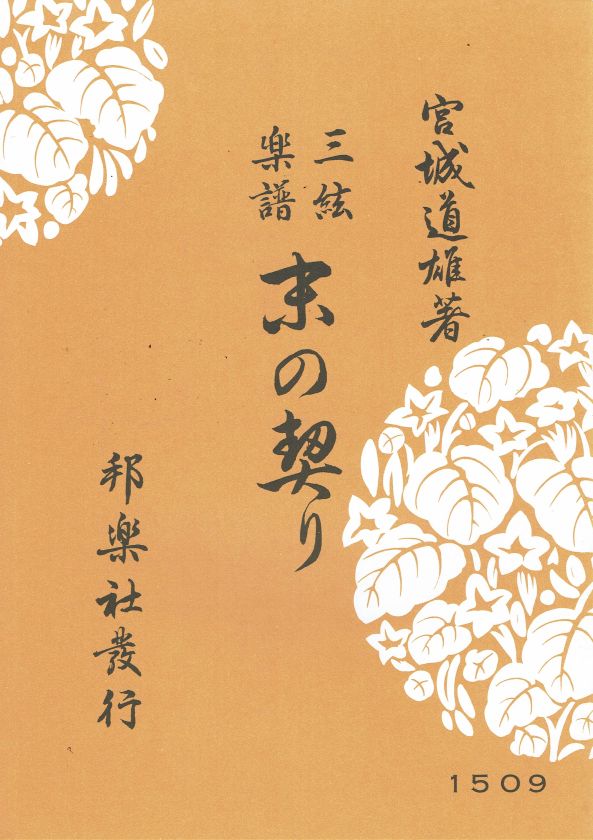 宮城道雄著
三絃
楽譜
末の契り
邦楽社發行
1509